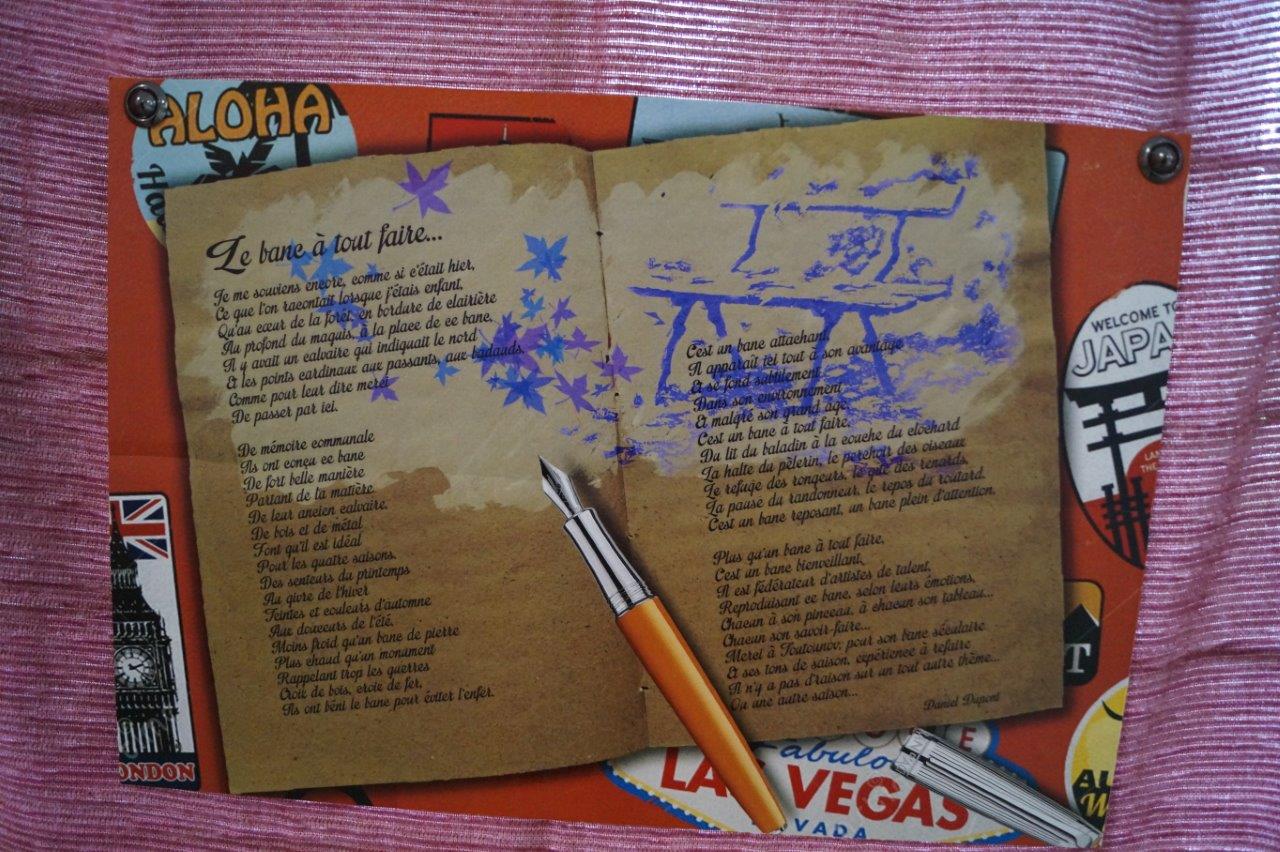 ALOHA
Le banc à tout faire...
Je me souviens encore, comme si c'était hier,
Ce que l'on racontait lorsque j'étais enfant,
Qu'au cœur de la forêt, en bordure de clairière
Au profond du maquis, à la place de ce banc,
Il y avait un calvaire qui indiquait le nord
Et les points cardinaux aux passants, aux badauds,
Comme pour leur dire merci
De passer par ici.
De mémoire communale
Ils ont conçu ce banc
De fort belle manière
Partant de la matière
De leur ancien calvaire.
De bois et de métal
Font qu'il est idéal
Pour les quatre saisons,
Des senteurs du printemps
Au givre de l'hiver
Teintes et couleurs d'automne
Aux douceurs de l'été.
Moins froid qu'un banc de pierre
Plus chaud qu'un monument
Rappelant trop les guerres
Croix de bois, croix de fer,
Ils ont béni le banc pour éviter l'enfer.
C'est un banc attachant,
Il apparaît ici tout à son avantage
Et se fond subtilement
Dans son environnement
Et malgré son grand âge
C'est un banc à tout faire,
Du lit du baladin à la couche du clochard
La halte du pèlerin, le perchoir des oiseaux
Le refuge des rongeurs, le gué des renards,
La pause du randonneur, le repos du routard.
C'est un banc reposant, un banc plein d'attention.
Plus qu'un banc à tout faire,
C'est un banc bienveillant,
Il est fédérateur d'artistes de talent,
Reproduisant ce banc, selon leurs émotions,
Chacun à son pinceau, à chacun son tableau...
Chacun son savoir-faire...
Merci à Toutounov, pour son banc séculaire
Et ses tons de saison, expérience à refaire
Il n'y a pas d'raison sur un tout autre thème...
Ou une autre saison...
Daniel Dupont
WELCOME TO
JAPA
ONDON
Fabulo
LAS VEGAS
VADA